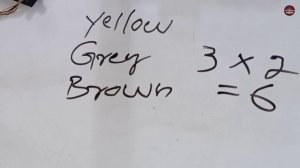 Yellow
Grey 3 × 2
Brown = 6